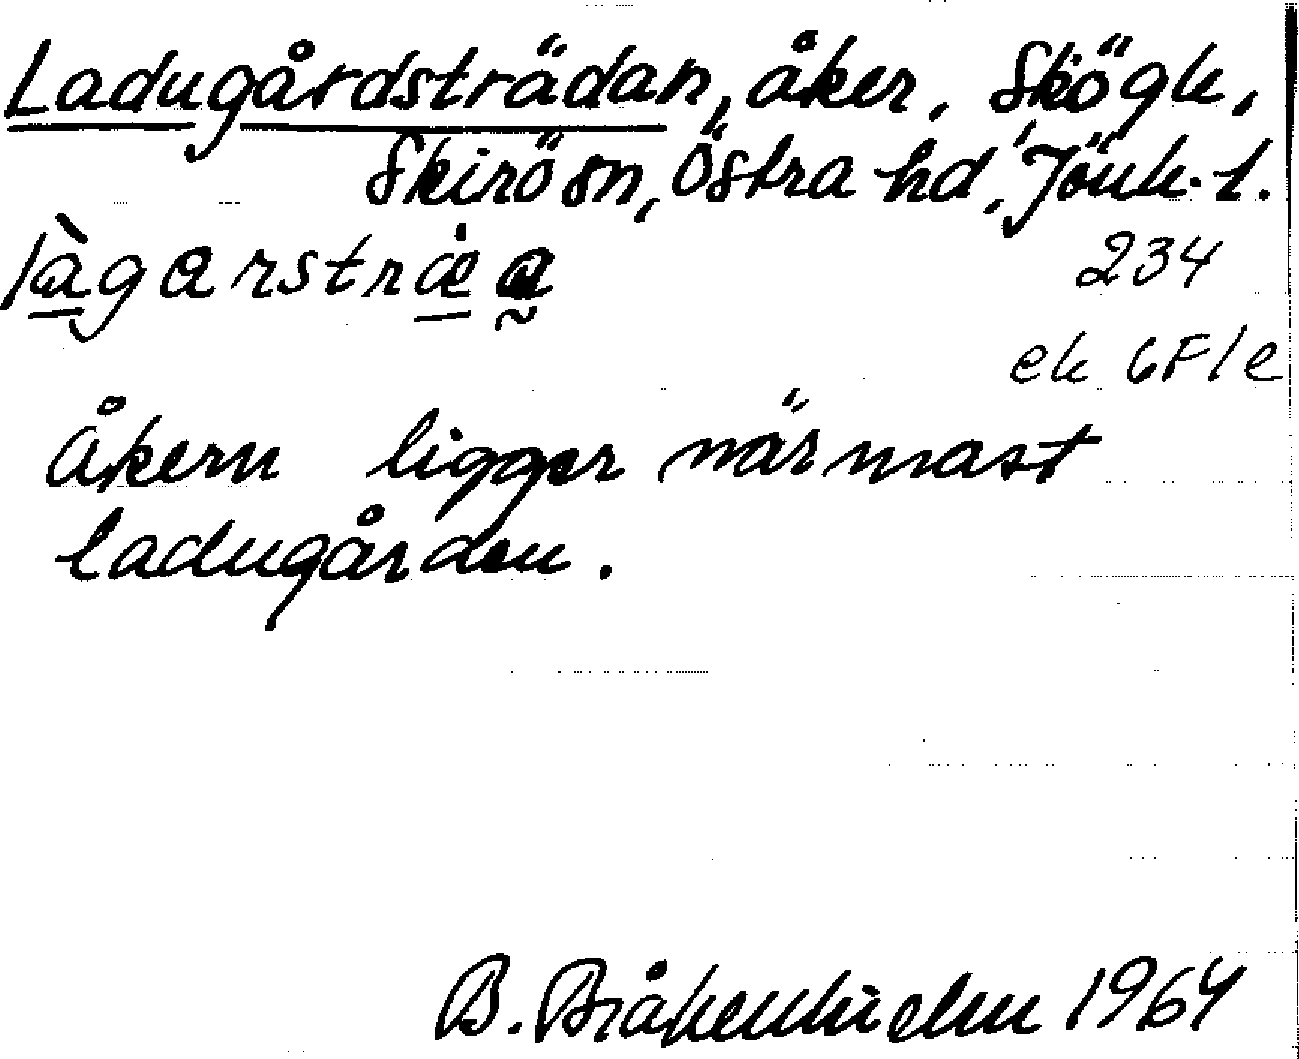 Ladugårdsträdan, åker, Skögle,
Skirö sn, Östra hd, Jönk. l.
234
ek 6F1e
Åkern ligger närmast
ladugården.
B. Bråkenhielm 1964